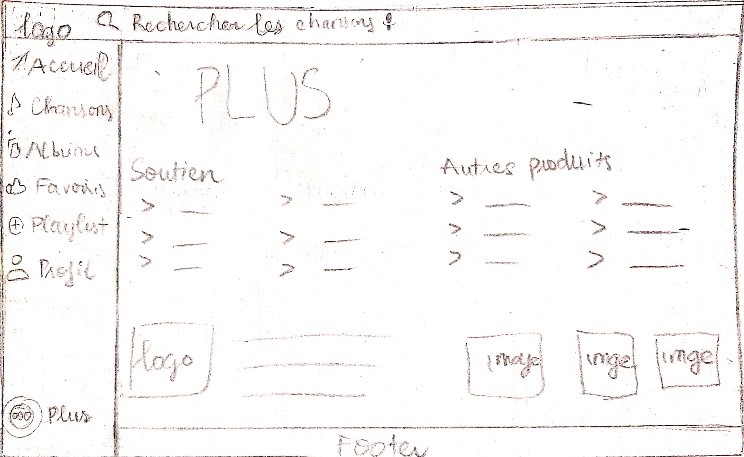 logo Rechercher les chansons !
Accueil
Chansons
Albums
Favoris
Playlist
Profil
Plus
PLUS
Soutien
Autres produits
> >
> >
> >
> >
> >
> >
logo
image
imge
imge
Footer